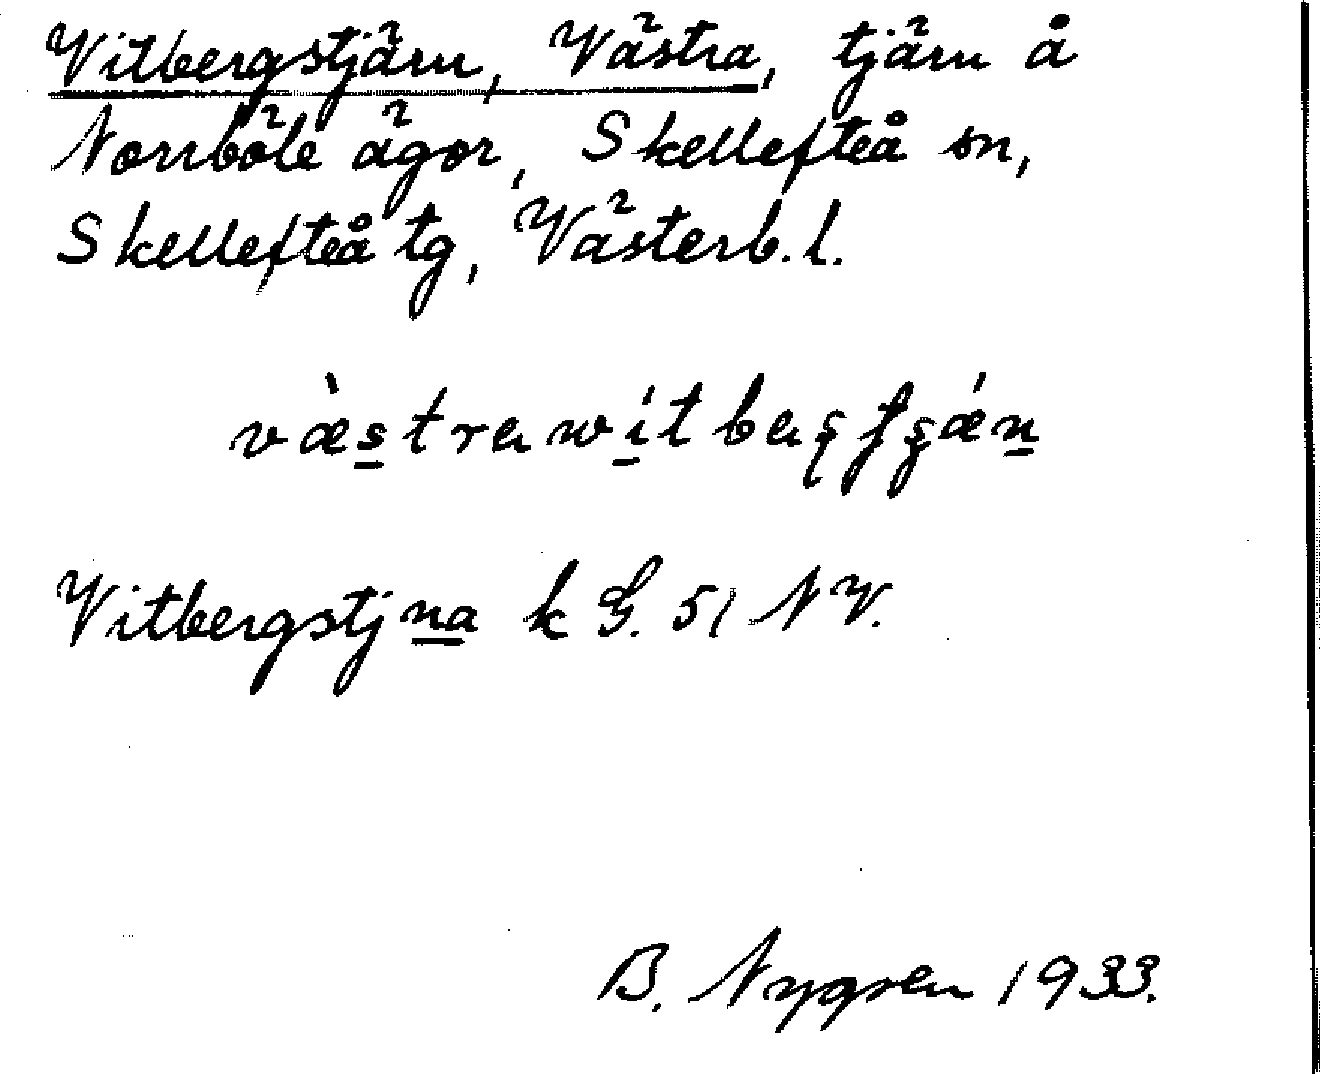 Vitbergstjärn, Västra, tjärn å
Norrböle ägor, Skellefteå sn,
Skellefteå tg, Västerb. l.
Vitbergstjna k G. 51 NV.
B. Nygren 1933.